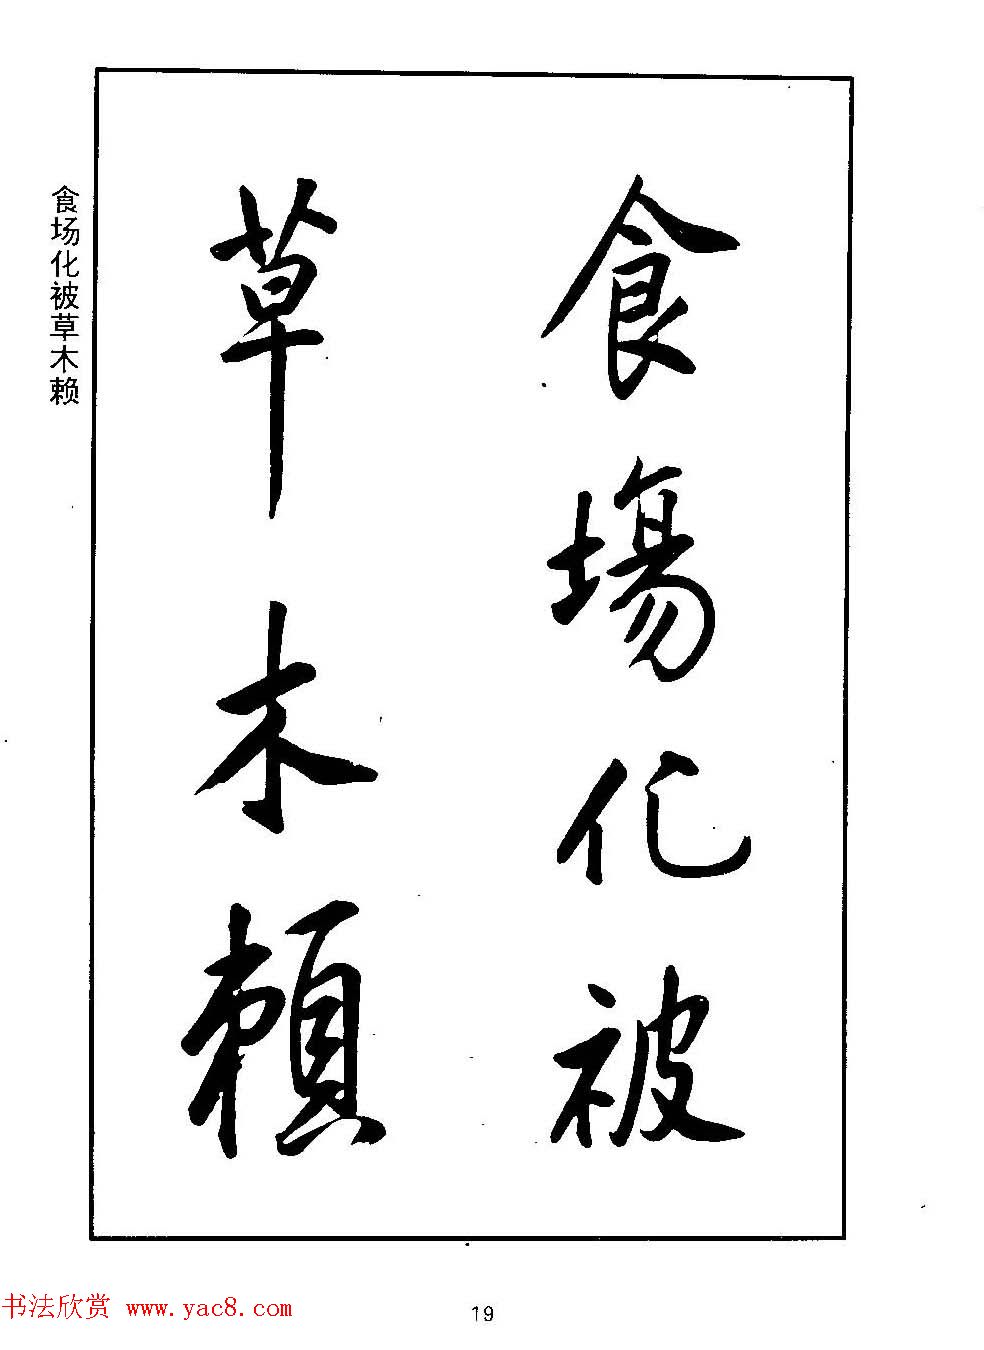 食場化被
草木頼
食场化被草木赖
书法欣赏 www.yac8.com
19